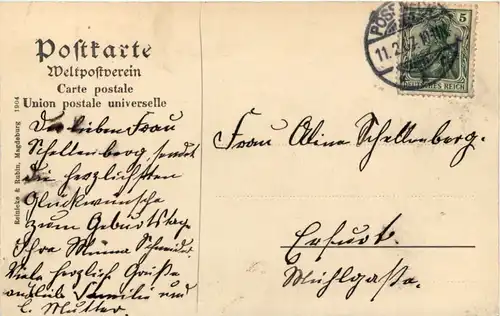 Postkarte
Weltpostverein
Carte postale
Union postale universelle
Reinicke & Rubin, Magdeburg 1904
11.2.
5
DEUTSCHES REICH
Der lieben Frau
Schellenberg sendet
die herzlichsten
Glückwünsche
zum Geburtstag
Ihre Minna Schneider.
Viele herzlich Grüße
Familie und
l. Mutter.
Frau Aline Schellenberg.
Erfurt.
Mühlgasse.